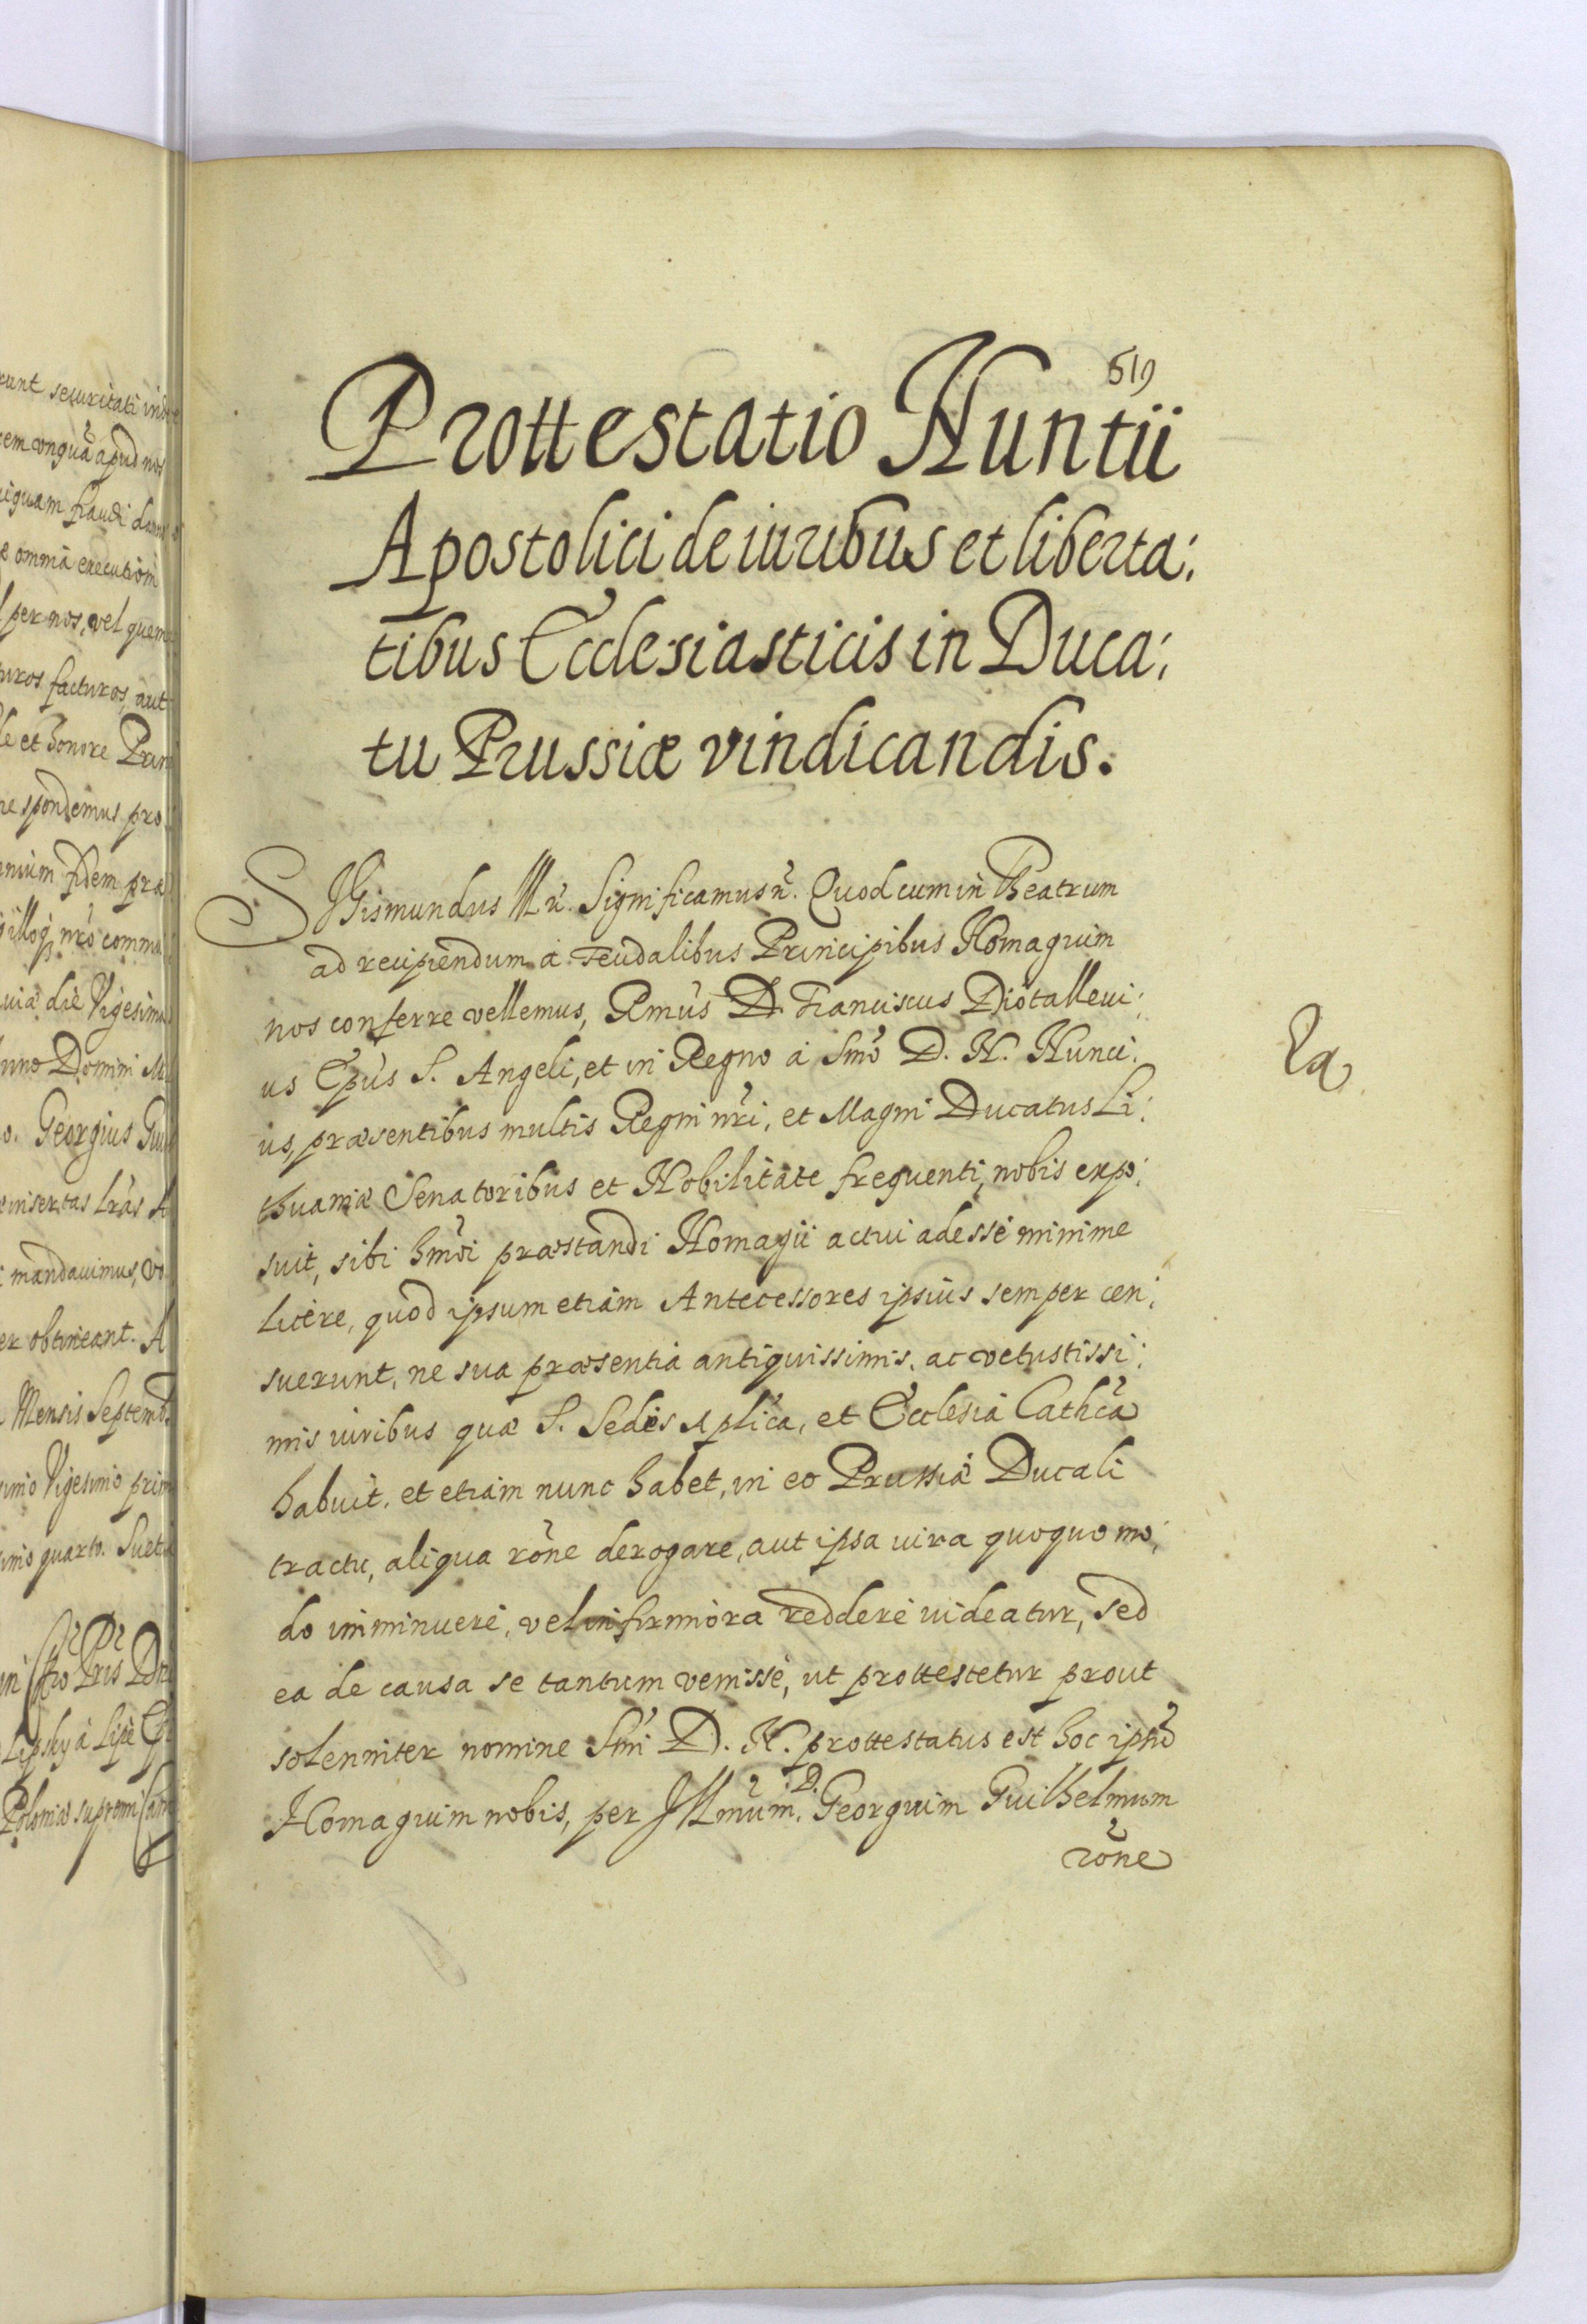 619
Prottestatio Nuntii
Apostolici de iuribus et liberta:
tibus Ecclesiasticis in Duca:
tu Prussiæ vindicandis.
SIGismundus IIIus. Significamus ñ. Quod cum in Theatrum
ad recipiendum a Feudalibus Principibus Homagium
nos conferre vellemus, Rmus D. Franciscus Diotalleui:
us Epus S. Angeli, et in Regno a Smo D. N. Nunci:
us, præsentibus multis Regni nri, et Magni Ducatus Li:
thuaniæ Senatoribus et Nobilitate frequenti, nobis expo:
suit, sibi hmoi præstandi Homagii actui adesse minime
licere, quod ipsum etiam Antecessores ipsius semper cen:
suerunt, ne sua præsentia antiquissimis, ac vetustissi:
mis iuribus quæ S. Sedes Aplica, et Ecclesia Cathca
habuit, et etiam nunc habet, in eo Prussiæ Ducali
tractu, aliqua rone derogare, aut ipsa iura quoquo mo:
do imminuere, vel infirmiora reddere uideatur, sed
ea de causa se tantum venisse, ut prottestetur prout
solenniter nomine Smi D. N. prottestatus est hoc ipsu
Homagium nobis, per Illmum. D. Georgium Guilhelmum
rone
runt securitati
em vnqua apud nos
quam fraudi
omnia
per nos, vel quem
uros facturos, aut
et honore
spondemus pro
nium fidem præ
nro commu
die Vigesima
nno Domini
o. Georgius
insertas lras
mandauimus,
er obtineant. A
Mensis Septemb
imo Vigesimo prim
imo quarto.
Pris
Lipsky a Lipe
Poloniæ supremi